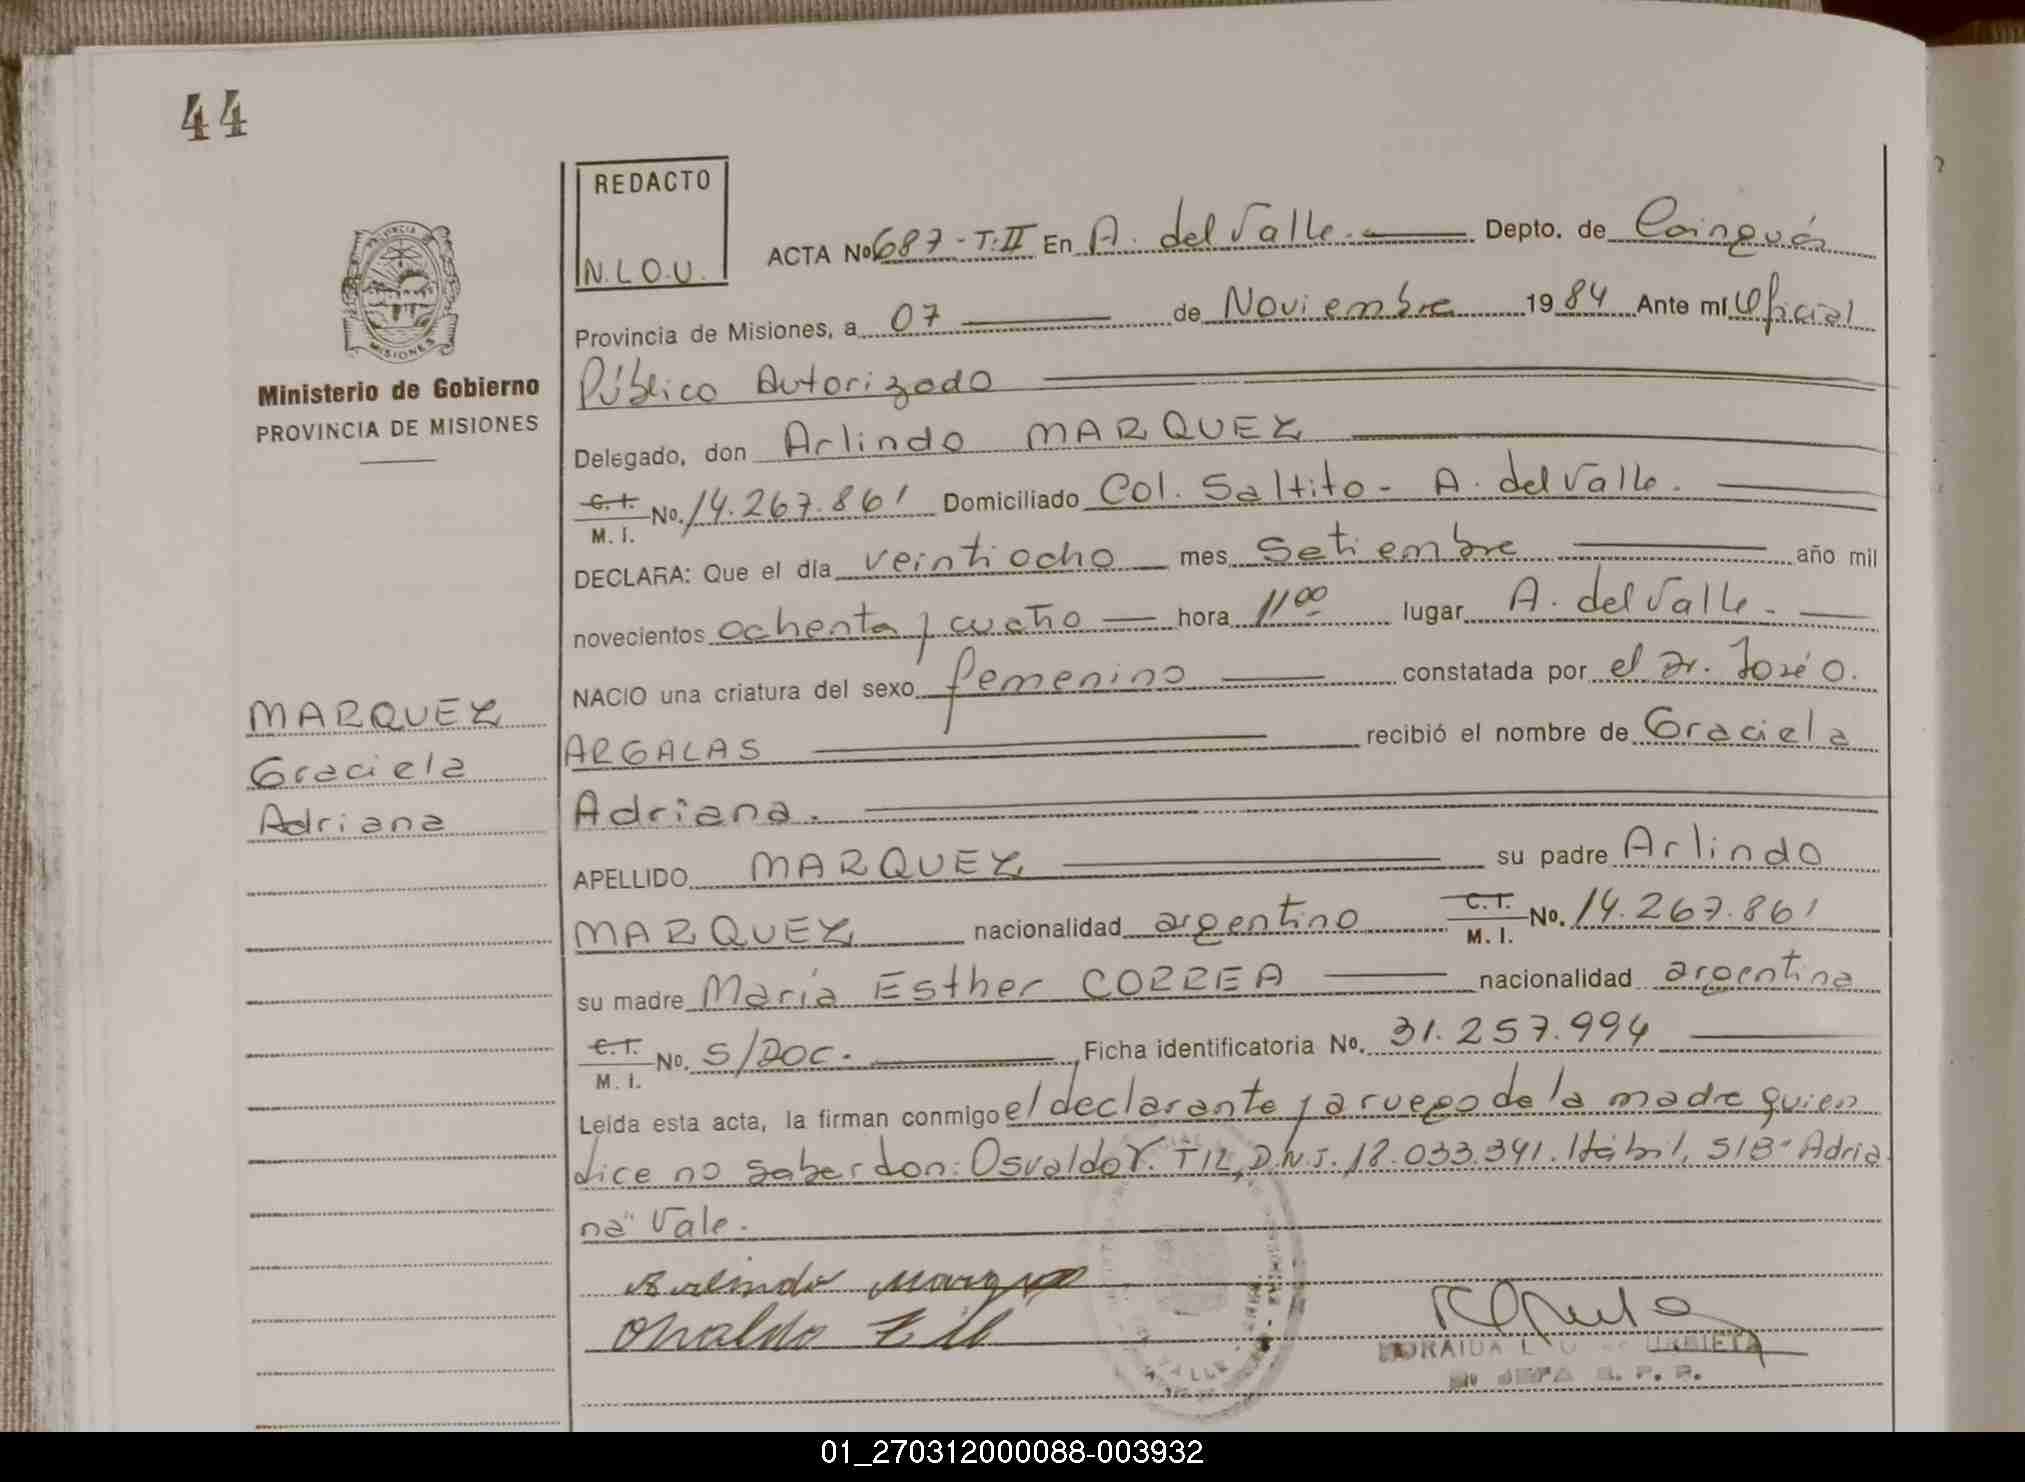 44
REDACTO
N.L.O.U.
ACTA No 687 - T: II En A. del Valle. Depto. de Cainguás
Provincia de Misiones, a 07 de Noviembre 1984 Ante mí Oficial
Ministerio de Gobierno
PROVINCIA DE MISIONES
Público Autorizado
Delegado, don Arlindo MARQUEZ
C.I. M.I. No. 14.267.861 Domiciliado Col. Saltito - A. del Valle.
DECLARA: Que el día veintiocho mes Setiembre año mil
novecientos ochenta y cuatro hora 11°° lugar A. del Valle.
NACIO una criatura del sexo femenino constatada por el Dr. José O.
ARGALAS recibió el nombre de Graciela
Adriana.
MARQUEZ
Graciela
Adriana
APELLIDO MARQUEZ su padre Arlindo
MARQUEZ nacionalidad argentino C.I. M.I. No. 14.267.861
su madre María Esther CORREA nacionalidad argentina
C.I. M.I. No. S/DOC. Ficha identificatoria No. 31.257.994
Leída esta acta, la firman conmigo el declarante y a ruego de la madre quien
dice no saber don: Osvaldo Y. TIL, D.N.I. 18.033.341. Hábil, S/B "Adria
na" Vale.
Arlindo Marquez
Osvaldo Til
JEFA R. P. P.
MISIONES
VALLE
01_270312000088-003932